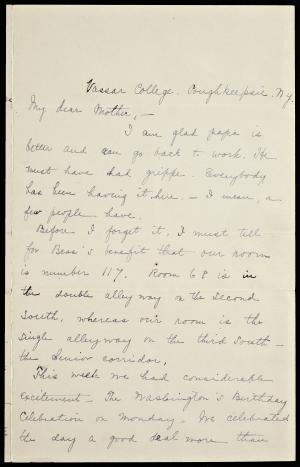 Vassar College. Poughkeepsie. N.Y.
My dear Mother, —
I am glad papa is
better and can go back to work. He
must have had grippe. Everybody
has been having it here. — I mean, a
few people have.
Before I forget it, I must tell
for Bess's benefit that our room
is number 117. Room 68 is in
the double alleyway on the second
South, whereas our room is the
single alleyway on the third South —
the Senior corridor.
This week we had considerable
excitement — The Washington's Birthday
Celebration on Monday. We celebrated
the day a good deal more than